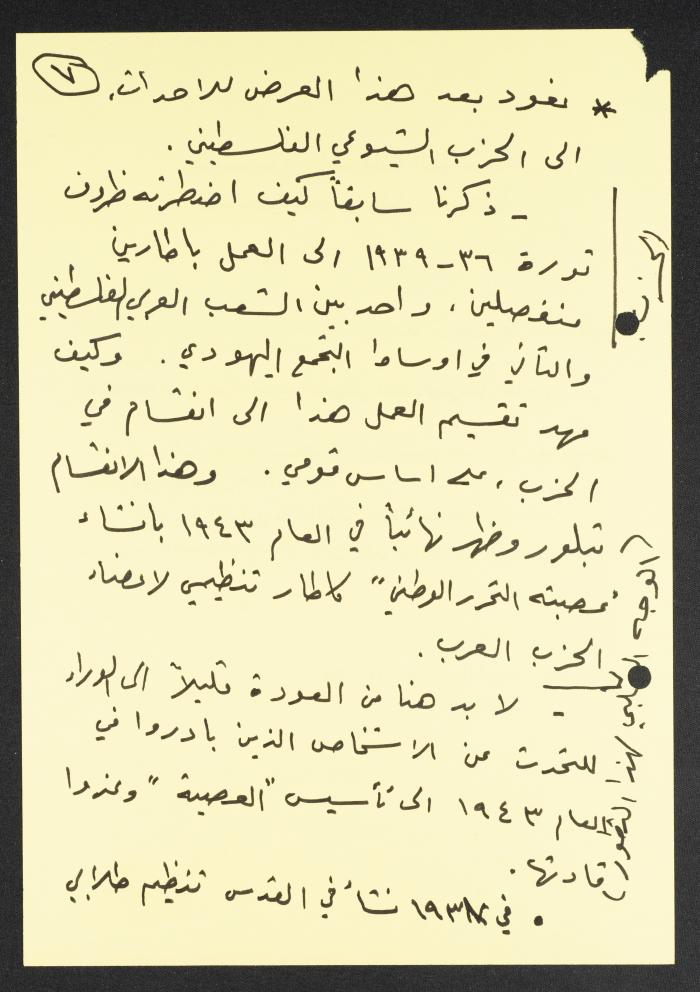 ٧
* نعود بعد هذا العرض للاحداث،
الى الحزب الشيوعي الفلسطيني .
- ذكرنا سابقاً كيف اضطرته ظروف
ثورة ٣٦-١٩٣٩ الى العمل باطارين
منفصلين، واحد بين الشعب العربي الفلسطيني
والثاني في اوساط التجمع اليهودي . وكيف
مهد تقسيم العمل هذا الى انقسام في
الحزب ، على اساس قومي . وهذا الانقسام
تبلور وظهر نهائياً في العام ١٩٤٣ بانشاء
"عصبته التحرر الوطني" كاطار تنظيمي لاعضاء
الحزب العرب .
- لا بد هنا من العودة قليلاً الى الوراء
للتحدث عن الاشخاص الذين بادروا في
العام ١٩٤٣ الى تأسيس "العصبة" وغدوا
قادتها .
• في ١٩٣٨ نشأ في القدس تنظيم طلابي
الحزب
(الوجه السلبي لهذا التطور)